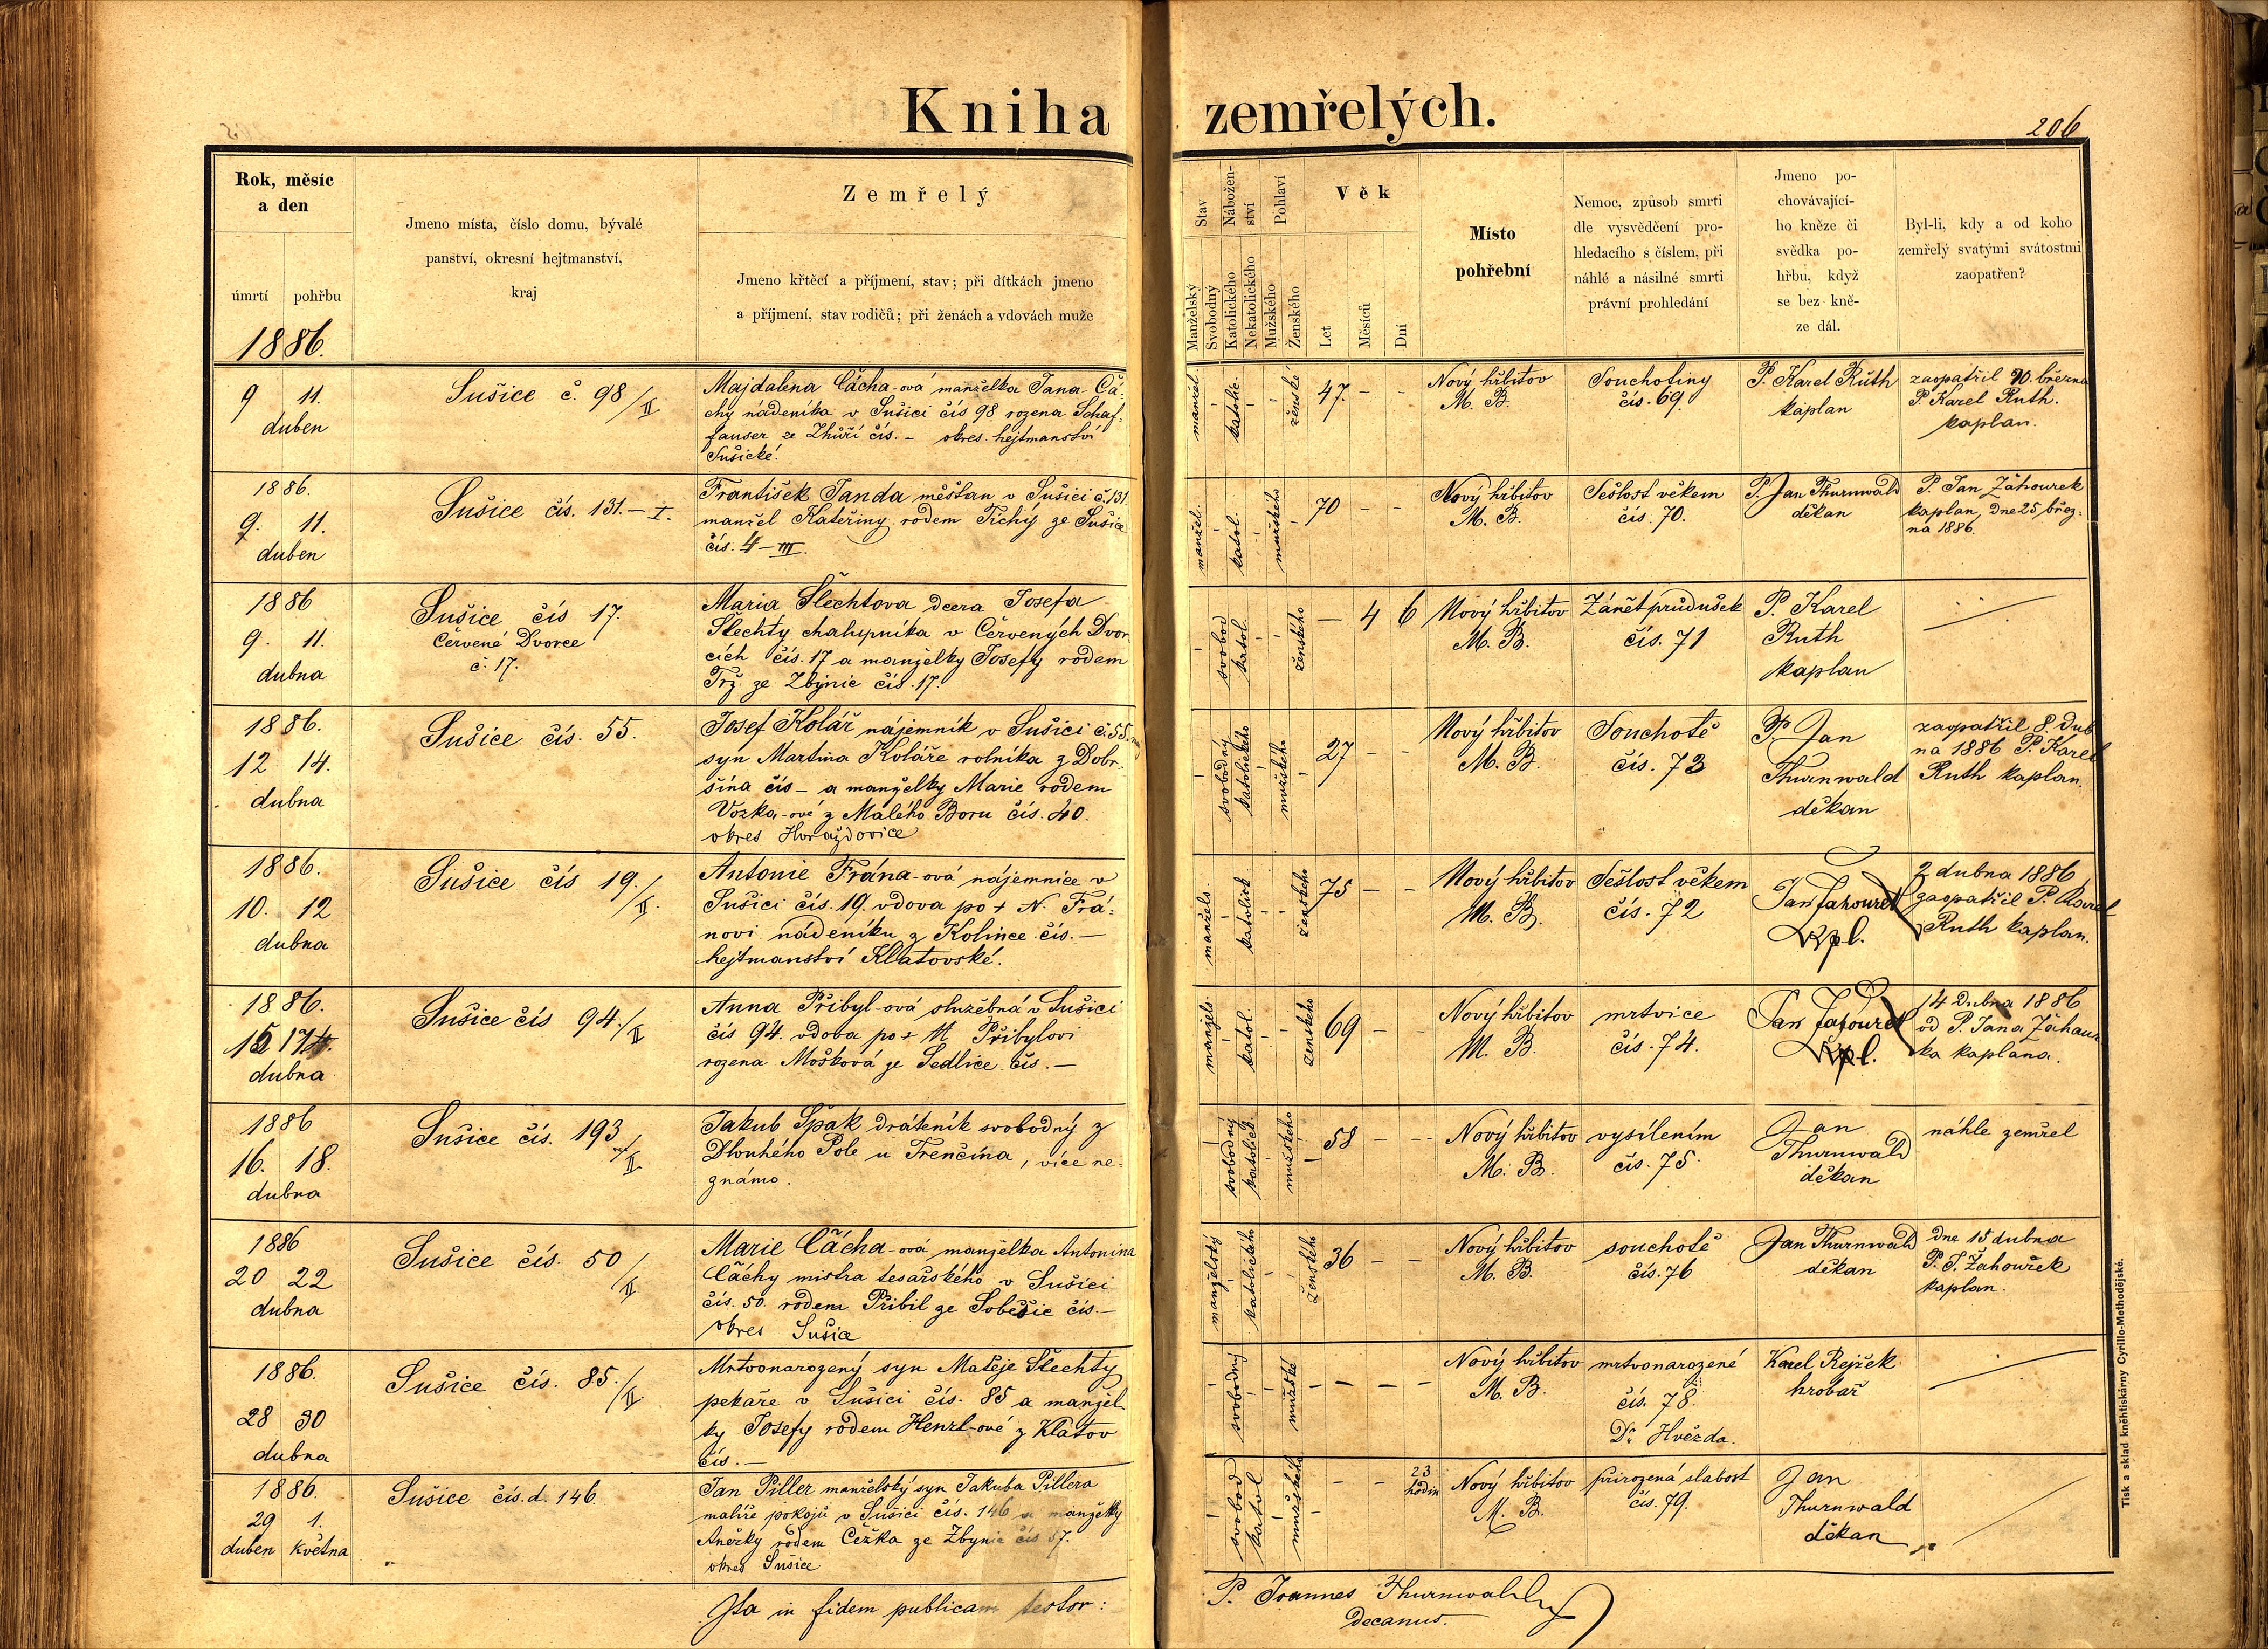 Kniha zemřelých.
206
Rok, měsíc
a den
úmrtí pohřbu
1886.
Jmeno místa, číslo domu, bývalé
panství, okresní hejtmanství,
kraj
Zemřelý
Jmeno křtěcí a příjmení, stav; při dítkách jmeno
a příjmení, stav rodičů; při ženách a vdovách muže
Stav
Manželský
Svobodný
Nábožen-
ství
Katolického
Nekatolického
Pohlaví
Mužského
Ženského
Věk
Let
Měsíců
Dní
Místo
pohřební
Nemoc, způsob smrti
dle vysvědčení pro-
hledacího s číslem, při
náhlé a násilné smrti
právní prohledání
Jmeno po-
chovávající-
ho kněze či
svědka po-
hřbu, když
se bez kně-
ze dál.
Byl-li, kdy a od koho
zemřelý svatými svátostmi
zaopatřen?
9 11.
duben
Sušice č. 98/II
Majdalena Čácha-ová manželka Jana Čá-
chy nádeníka v Sušici čís 98 rozena Schaf-
fauser ze Zhůří čís. - okres. hejtmanství
Sušické.
manžel.
katolic.
ženské
47. - -
Nový hřbitov
M. B.
Souchotiny
čís. 69.
P. Karel Růth
kaplan
zaopatřil 10. března
P. Karel Ruth.
kaplan.
1886.
9. 11.
duben
Sušice čís. 131. - I.
František Janda měšťan v Sušici č. 131
manžel Kateřiny rodem Tichý ze Sušice
čís. 4 - III.
manžel.
katol.
mužského
70 - -
Nový hřbitov
M. B.
Sešlost věkem
čís. 70.
P. Jan Thurnwald
děkan
P. Jan Záhourek
kaplan, dne 25 břez-
na 1886.
1886
9. 11.
dubna
Sušice čís 17.
Červené Dvorce
č. 17.
Maria Šlechtova dcera Josefa
Šlechty chalupníka v Červených Dvor
cích čís. 17 a manželky Josefy rodem
Trž ze Zbynic čís. 17.
svobod
katol.
ženského
- 4 6
Nový hřbitov
M. B.
Zánět průdušek
čís. 71
P. Karel
Ruth
kaplan
1886.
12 14.
dubna
Sušice čís. 55.
Josef Kolář nájemník v Sušici č. 55.
syn Martina Koláře rolníka z Dobr-
šína čís - a manželky Marie rodem
Vozka-ové z Malého Boru čís. 40.
okres Horažďovice
svobodný
katolického
mužského
27 - -
Nový hřbitov
M. B.
Souchotě
čís. 73
P. Jan
Thurnwald
děkan
zaopatřil 8. dub
na 1886 P. Karel
Ruth kaplan.
1886.
10. 12
dubna
Sušice čís 19./II.
Antonie Frána-ová nájemnice v
Sušici čís. 19. vdova po + N. Frá-
novi nádeníku z Kolince čís. -
hejtmanství Klatovské.
manžels.
katolick
ženského
75 - -
Nový hřbitov
M. B.
Sešlost věkem
čís. 72
Jan Záhourek
Kpl.
2 dubna 1886
zaopatřil P. Karel
Ruth kaplan.
1886.
15 17.
dubna
Sušice čís 94./II
Anna Přibyl-ová služebná v Sušici
čís 94. vdova po + M Přibylovi
rozena Mošková ze Sedlice čís. -
manžels.
katol.
ženského
69 - -
Nový hřbitov
M. B.
mrtvice
čís. 74.
Jan Záhourek
Kpl.
14 dubna 1886
od P. Jana Záhour
ka kaplana.
1886
16. 18.
dubna
Sušice čís. 193/II
Jakub Špak dráteník svobodný z
Dlouhého Pole u Trenčína, více ne-
známo.
svobodný
katolick.
mužského
58 - -
Nový hřbitov
M. B.
vysílením
čís. 75.
Jan
Thurnwald
děkan
náhle zemřel
1886
20 22
dubna
Sušice čís. 50/II
Marie Čácha-ová manželka Antonina
Čáchy mistra tesařského v Sušici
čís. 50. rodem Přibil ze Soběšic čís. -
okres Sušice
manželský
katolického
ženského
36 - -
Nový hřbitov
M. B.
souchotě
čís. 76
Jan Thurnwald
děkan
dne 15 dubna
P. J. Záhouřek
kaplan.
1886.
28 30
dubna
Sušice čís. 85./II
Mrtvonarozený syn Matěje Šlechty
pekaře v Sušici čís. 85 a manžel-
ky Josefy rodem Henzl-ové z Klatov
čís. -
svobodný
mužské
- - -
Nový hřbitov
M. B.
mrtvonarozené
čís. 78.
Dr. Hvězda.
Karel Rejžek
hrobař
1886.
29 1.
duben května
Sušice čís. d. 146.
Jan Piller manželský syn Jakuba Pillera
malíře pokojů v Sušici čís. 146 a manželky
Anežky rodem Čežka ze Zbynic čís 57.
okres Sušice
svobod
katol
mužského
- - 23
hodin
Nový hřbitov
M. B.
přirozená slabost
čís. 79.
Jan
Thurnwald
děkan
Ita in fidem publicam testor:
P. Joannes Thurnwald
Decanus.
Tisk a sklad kněhtiskárny Cyrillo-Methodějské.